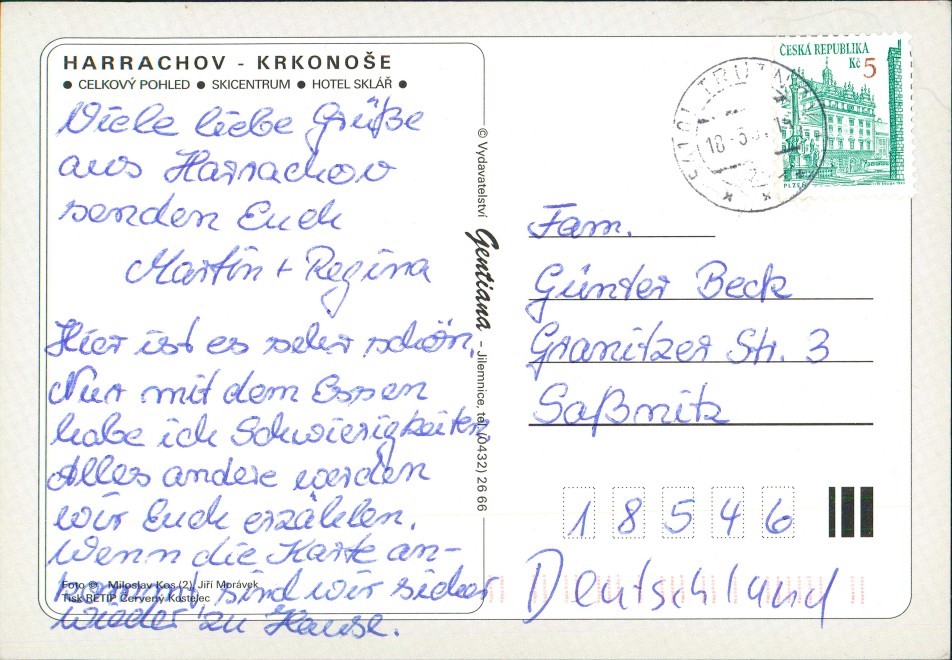 HARRACHOV - KRKONOŠE
● CELKOVÝ POHLED ● SKICENTRUM ● HOTEL SKLÁŘ ●
Viele liebe Grüße
aus Harrachov
senden Euch
Martin + Regina
Hier ist es sehr schön.
Nur mit dem Essen
habe ich Schwierigkeiten.
Alles andere werden
wir Euch erzählen.
Wenn die Karte an-
kommt, sind wir sicher
wieder zu Hause.
Foto © Miloslav Kos (2), Jiří Morávek
Tisk RETIP Červený Kostelec
© Vydavatelství Gentiana - Jilemnice, tel. (0432) 26 66
ČESKÁ REPUBLIKA
Kč 5
PLZEŇ
18.
Fam.
Günter Beck
Granitzer Str. 3
Saßnitz
18546
Deutschland